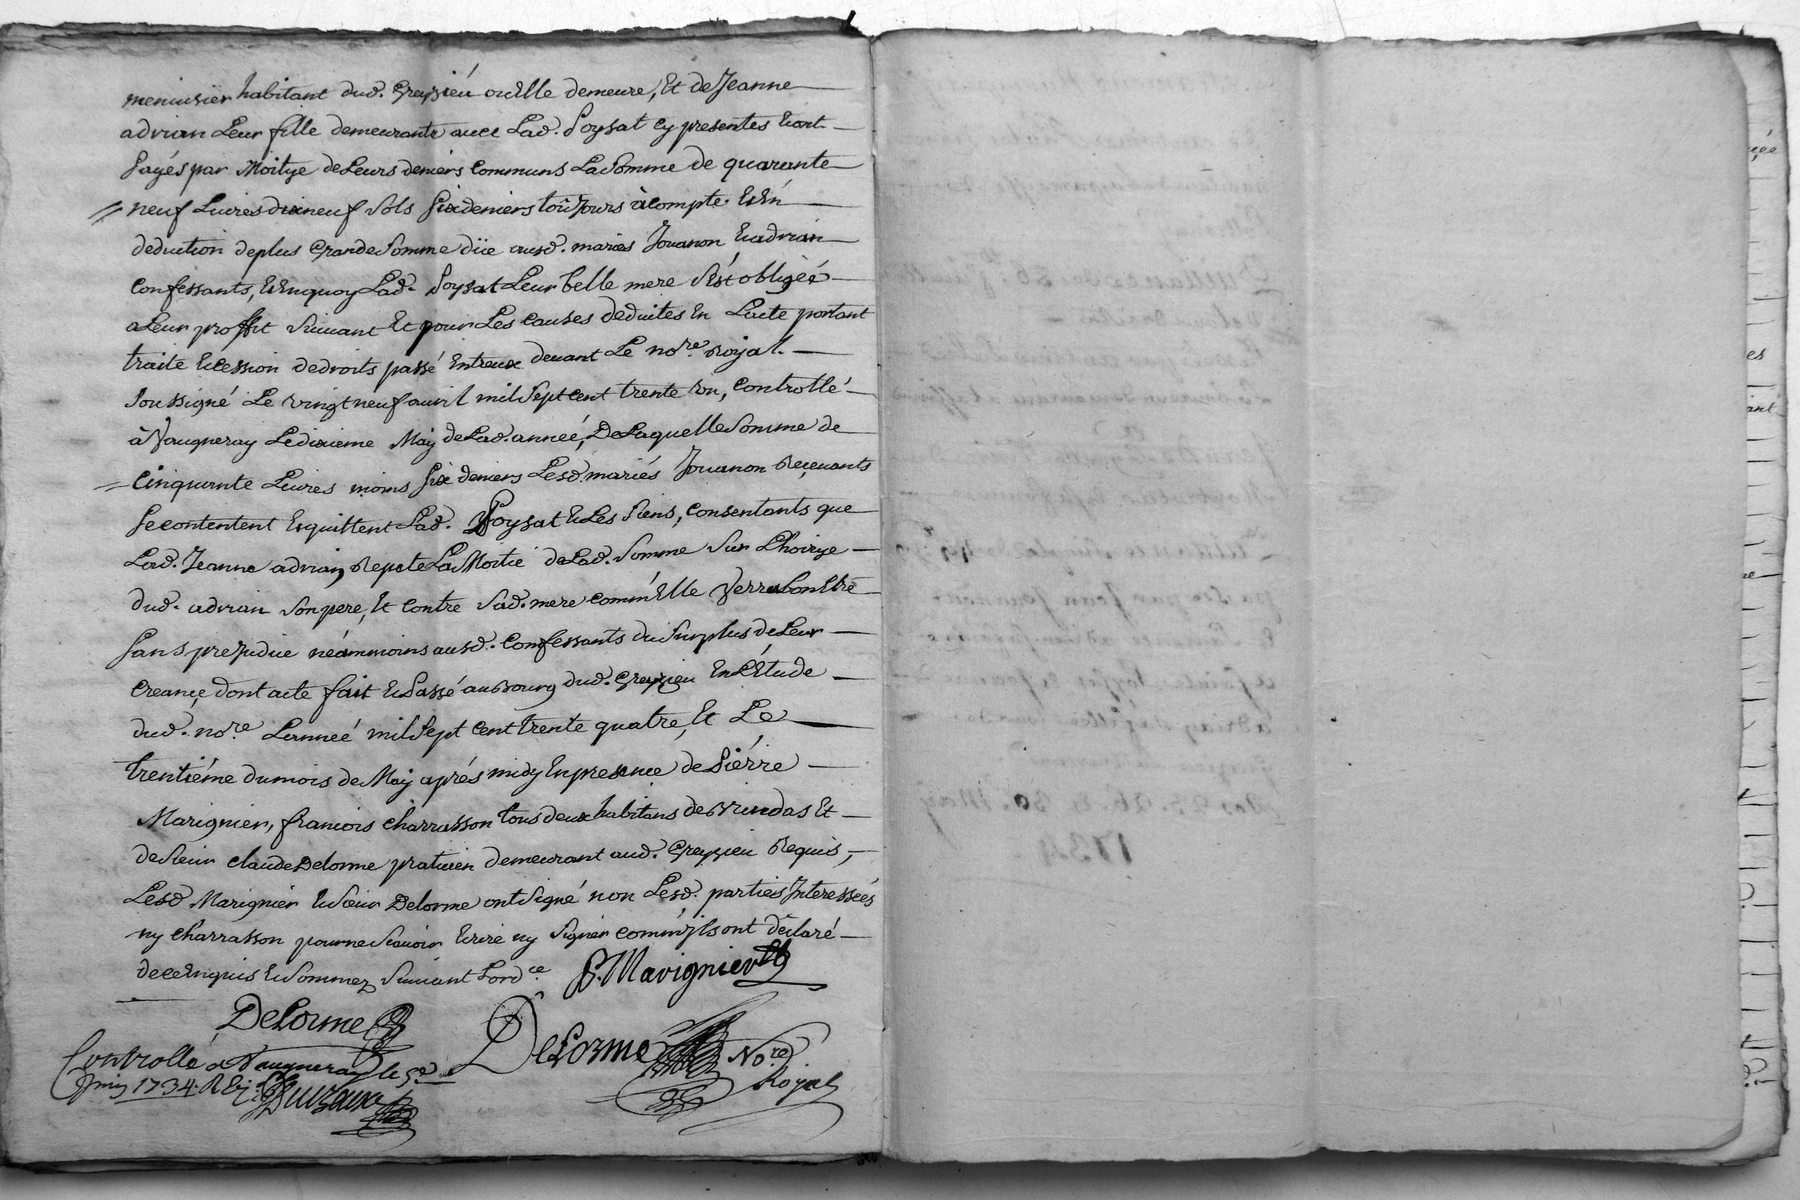 menuisier habitant dud. Greyzieu ou Elle demeure, Et de Jeanne
adrian Leur fille demeurante avec Lad. Poysat cy presentes Eont
payés par Moitye de Leurs deniers communs La Somme de quarante
neuf Livres dixneuf Sols Six deniers toûjours à compte Et En
deduction de plus Grande Somme düe ausd. mariés Jouanon Et adrian
Confessants, Et En quoy Lad. Poysat Leur belle mere S'est obligéé
a Leur proffit Suivant Et pour Les causes deduites En Lacte portant
traité Et Cession de droits passé Entreux devant Le no.re Royal
Soussigné Le vingt neuf avril mil Sept cent trente un, Controllé
à Vaugneray Le dixieme May de Lad. année, De Laquelle Somme de
Cinquante Livres moins Six deniers Lesd. mariés Jouanon Reçevants
Se contentent Et quittent Lad. Poysat Et Les Siens, Consentants que
Lad. Jeanne adrian, Repete La Moitié de Lad. Somme Sur L'hoirye
dud. adrian Son pere, Et contre Sad. mere comm'Elle verra bon Etre
Sans prejudice néammoins ausd. Confessants du Surplus de Leur
Creançe, dont acte fait Et Passé au Bourg dud. Greyzieu En L'Etude
dud. no.re L'année mil Sept cent trente quatre, Et Le
trentiéme du mois de May aprés midy En presence de Piérre
Marignier, françois Charrasson tous deux habitans de Brindas Et
de Sieur Claude Delorme praticien demeurant aud. Greyzieu Requis,
Lesd Marignier Et Sieur Delorme ont Signé non Lesd. parties Interessées
ny Charrasson pour ne Scavoir Ecrire ny Signer comm'ils ont déclaré
de ce Enquis Et Sommez Suivant Lord.ce P. Marignier
Delorme
Delorme No.re
Royal
Controllé a Vaugneray le 5e
Juin 1734